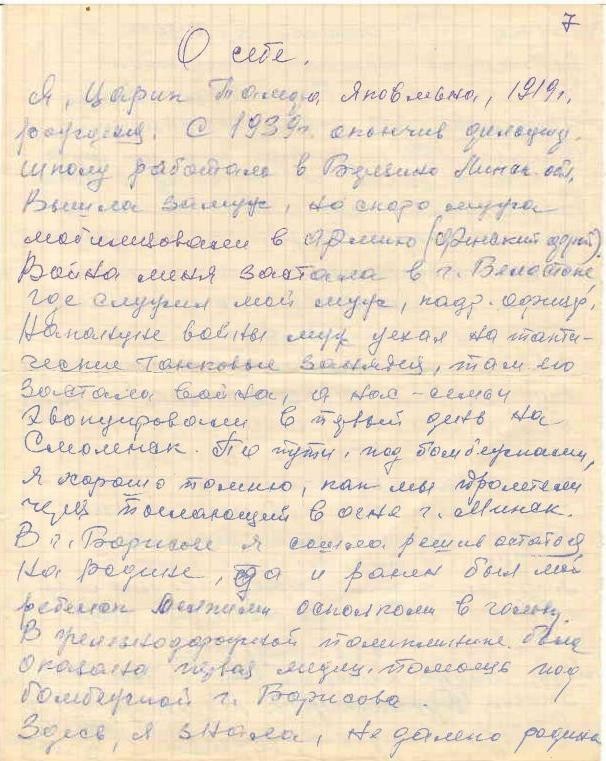 7
О себе.
Я, Царик Тамара Яковлевна, 1919 г.
рождения. С 1939 г. окончив
школу работала в Минск. обл.
Вышла замуж, но скоро мужа
мобилизовали в армию (финский фронт).
Война меня застала в г. Белостоке,
где служил мой муж, кадр. офицер.
Накануне войны муж уехал на такти-
ческие танковые занятия, там его
застала война, а нас - семьи
эвакуировали в первый день на
Смоленск. По пути, под бомбежками,
я хорошо помню, как мы пролетели
через пылающий в огне г. Минск.
В г. Борисове я сошла решив остаться
на родине, да и ранен был мой
ребенок осколками в голову.
В железнодорожной поликлинике была
оказана первая медиц. помощь под
бомбежкой г. Борисова.
Здесь, я знала, не далеко родина